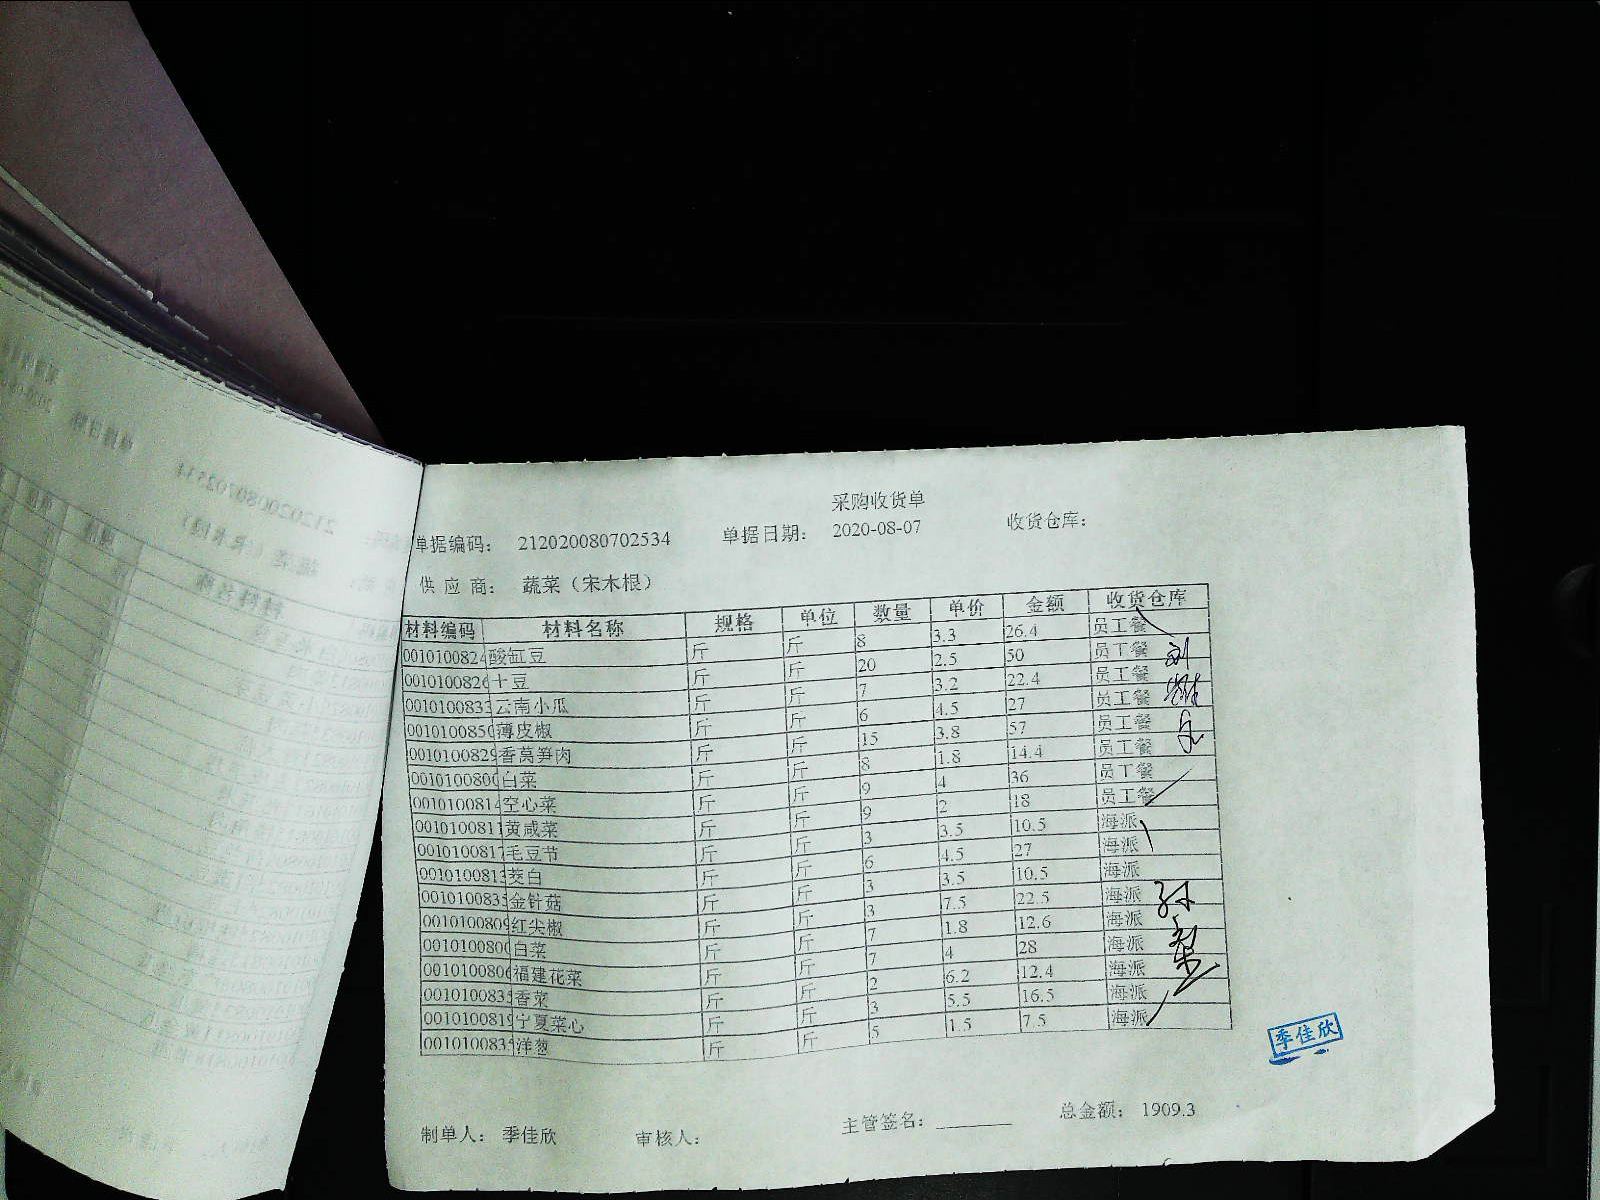 采购收货单
单据编码： 212020080702534 单据日期： 2020-08-07 收货仓库：
供 应 商： 蔬菜（宋木根）
材料编码 材料名称 规格 单位 数量 单价 金额 收货仓库
001010082 酸缸豆 斤 斤 8 3.3 26.4 员工餐
001010082 土豆 斤 斤 20 2.5 50 员工餐
001010083 云南小瓜 斤 斤 7 3.2 22.4 员工餐
001010085 薄皮椒 斤 斤 6 4.5 27 员工餐
0010100829 香莴笋肉 斤 斤 15 3.8 57 员工餐
001010080 白菜 斤 斤 8 1.8 14.4 员工餐
0010100814 空心菜 斤 斤 9 4 36 员工餐
001010081 黄咸菜 斤 斤 9 2 18 员工餐
001010081 毛豆节 斤 斤 3 3.5 10.5 海派
001010081 茭白 斤 斤 6 4.5 27 海派
001010083 金针菇 斤 斤 3 3.5 10.5 海派
001010080 红尖椒 斤 斤 3 7.5 22.5 海派
001010080 白菜 斤 斤 7 1.8 12.6 海派
001010080 福建花菜 斤 斤 7 4 28 海派
001010083 香菜 斤 斤 2 6.2 12.4 海派
001010081 宁夏菜心 斤 斤 3 5.5 16.5 海派
001010083 洋葱 斤 斤 5 1.5 7.5 海派
季佳欣
制单人： 季佳欣 审核人： 主管签名： 总金额： 1909.3